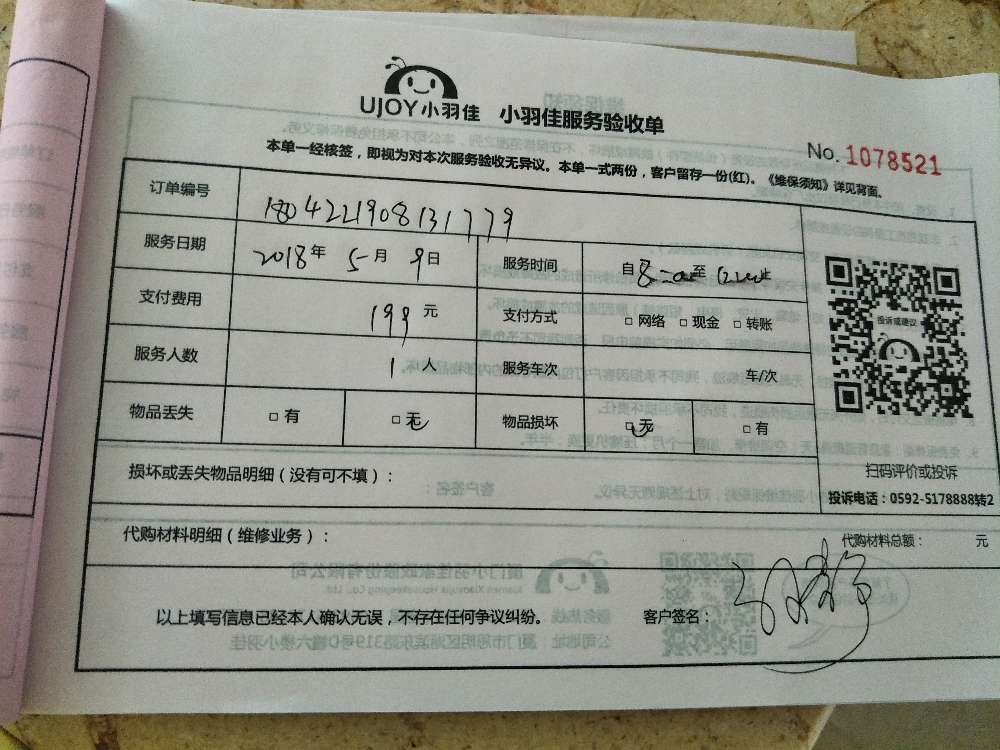 UJOY小羽佳 小羽佳服务验收单
No. 1078521
本单一经核签，即视为对本次服务验收无异议。本单一式两份，客户留存一份(红)。《维保须知》详见背面。
订单编号 1804221908131779
服务日期 2018年 5月 9日 服务时间 自8:00至12:00止
支付费用 199元 支付方式 □网络 □现金 □转账
服务人数 1人 服务车次 车/次
物品丢失 □有 □无 物品损坏 □无 □有
投诉或建议
扫码评价或投诉
投诉电话：0592-5178888转2
损坏或丢失物品明细（没有可不填）：
代购材料明细（维修业务）： 代购材料总额： 元
以上填写信息已经本人确认无误，不存在任何争议纠纷。 客户签名：